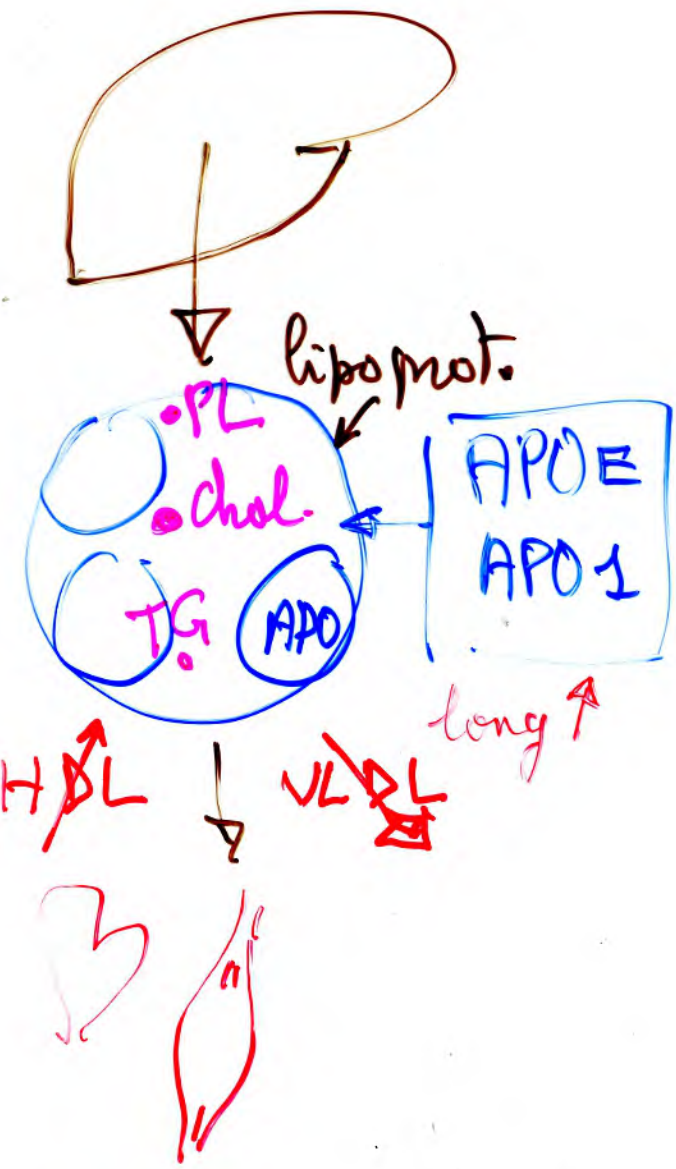 lipoprot.
PL
chol.
TG
APO
APO E
APO 1
long
HDL
VLDL